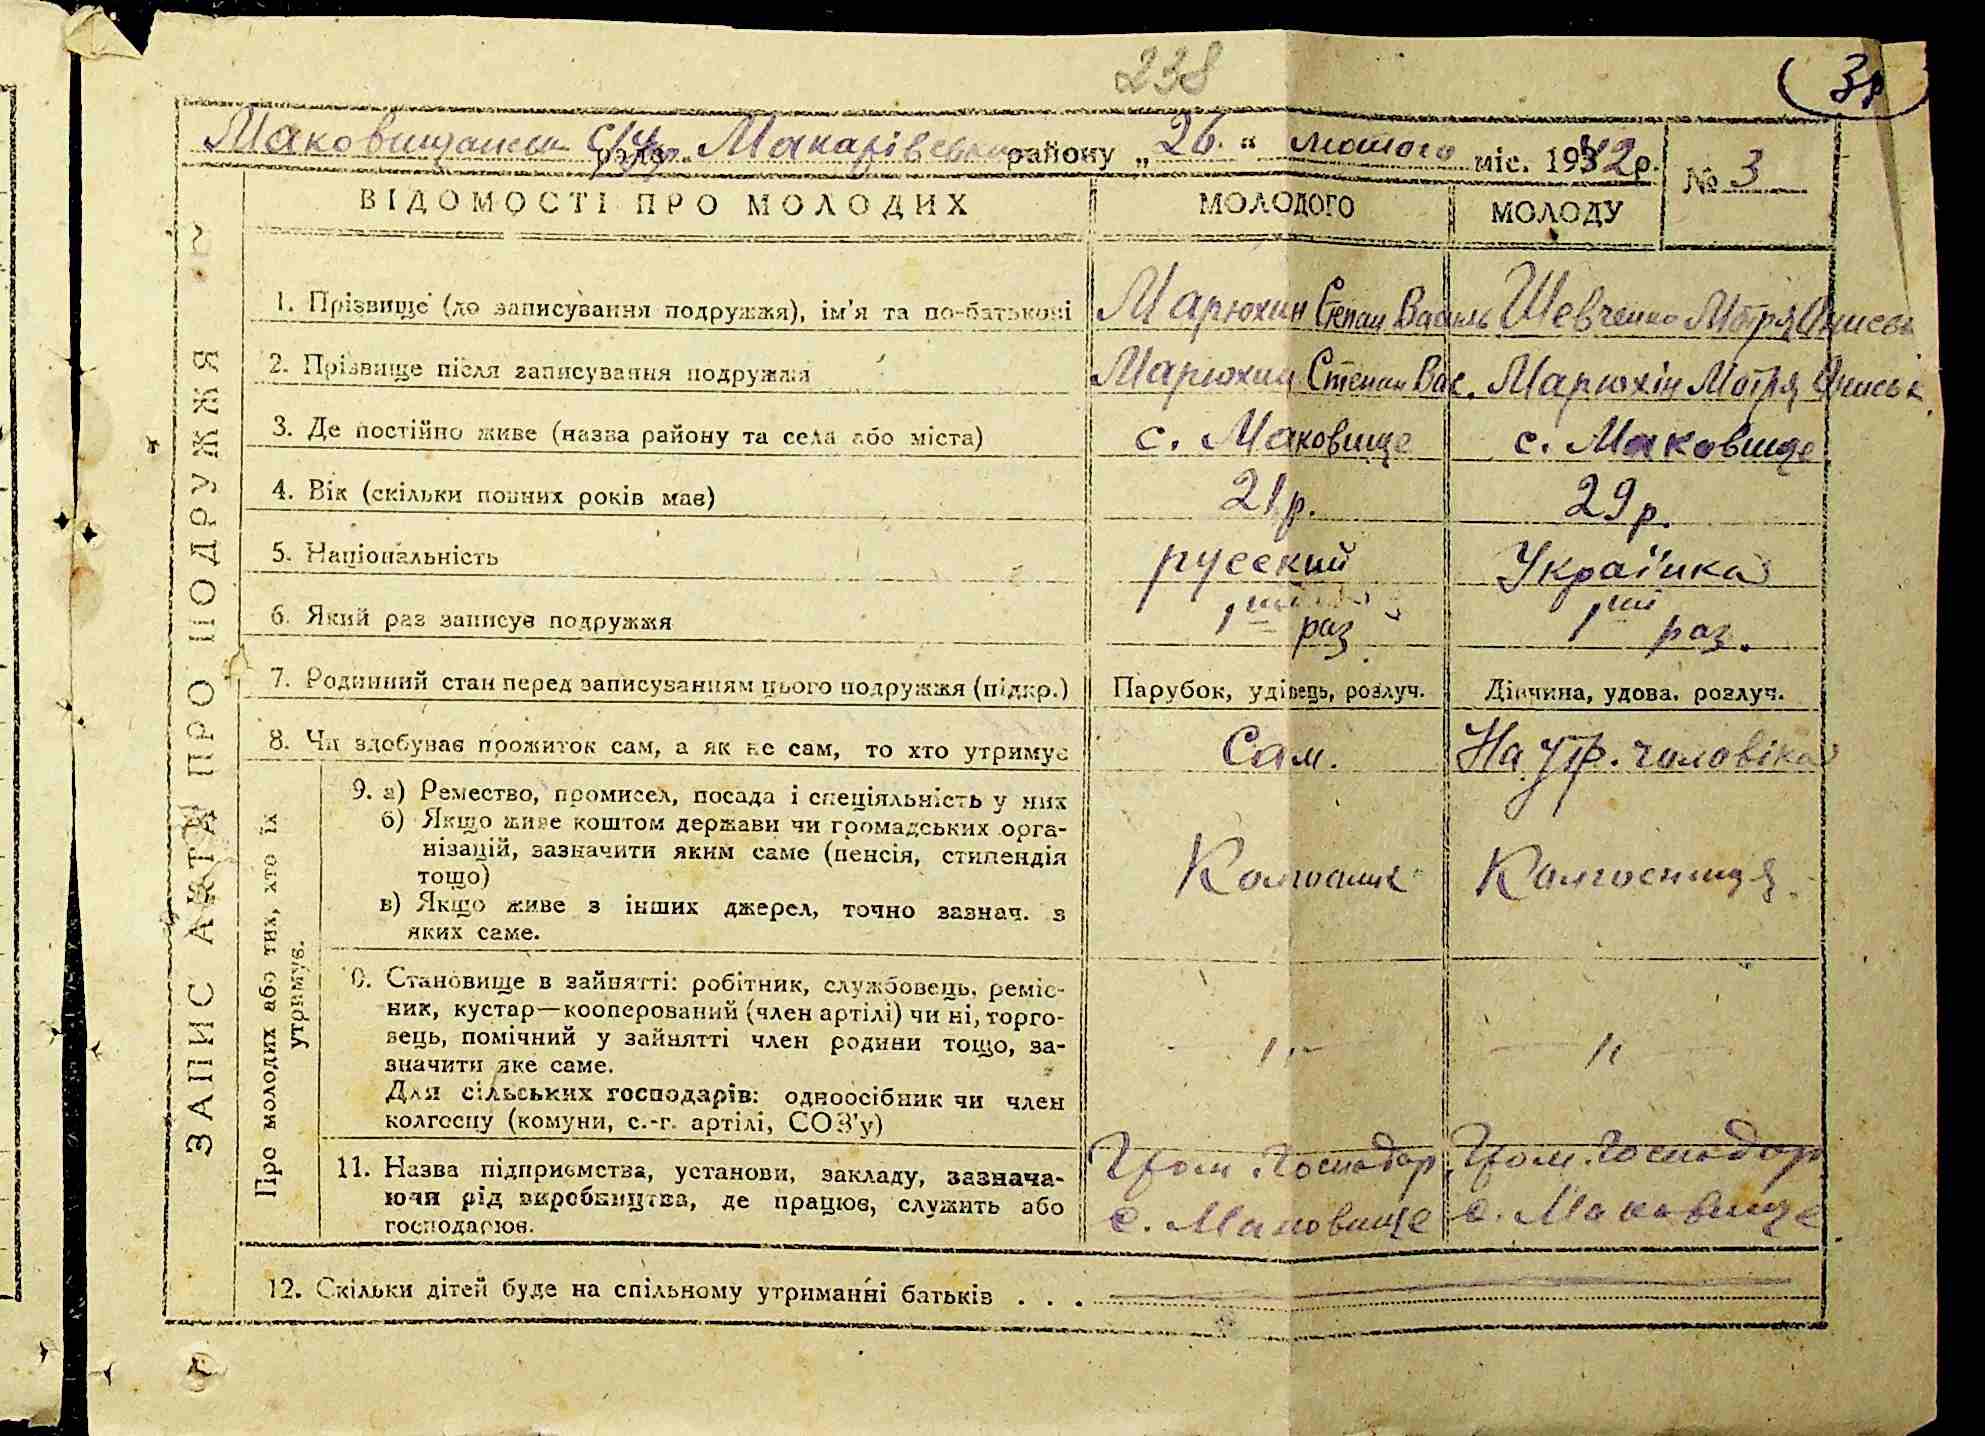 238
38
Маковищанськ с/упр. Макарівського району „26.“ лютого міс. 1942 р. № 3
ВІДОМОСТІ ПРО МОЛОДИХ МОЛОДОГО МОЛОДУ
1. Прізвище (до записування подружжя), ім'я та по-батькові Марюхин Степан Василь Шевченко Мотря Онисьв
2. Прізвище після записування подружжя Марюхин Степан Вас. Марюхін Мотря Ониськ.
3. Де постійно живе (назва району та села або міста) с. Маковище с. Маковище
4. Вік (скільки повних років має) 21 р. 29 р.
5. Національність русский Українка
6. Який раз записує подружжя 1ший раз 1ший раз.
7. Родинний стан перед записуванням цього подружжя (підкр.) Парубок, удівець, розлуч. Дівчина, удова, розлуч.
8. Чи здобуває прожиток сам, а як не сам, то хто утримує Сам. На утр. чоловіка
9. а) Ремество, промисел, посада і спеціяльність у них
б) Якщо живе коштом держави чи громадських орга-
нізацій, зазначити яким саме (пенсія, стипендія
тощо) Колгосник Колгосниця.
в) Якщо живе з інших джерел, точно зазнач. з
яких саме.
10. Становище в зайнятті: робітник, службовець, реміс-
ник, кустар—кооперований (член артілі) чи ні, торго-
вець, помічний у зайнятті член родини тощо, за- — „ — — „ —
значити яке саме.
Для сільських господарів: одноосібник чи член
колгоспу (комуни, с.-г. артілі, СОЗ'у)
11. Назва підприємства, установи, закладу, зазнача- Гром. Господар. Гром. Господар
ючи рід виробництва, де працює, служить або с. Маковище с. Маковище
господарює.
12. Скільки дітей буде на спільному утриманні батьків . . .
ЗАПИС АКТА ПРО ПОДРУЖЖЯ
Про молодих або тих, хто їх
утримує.